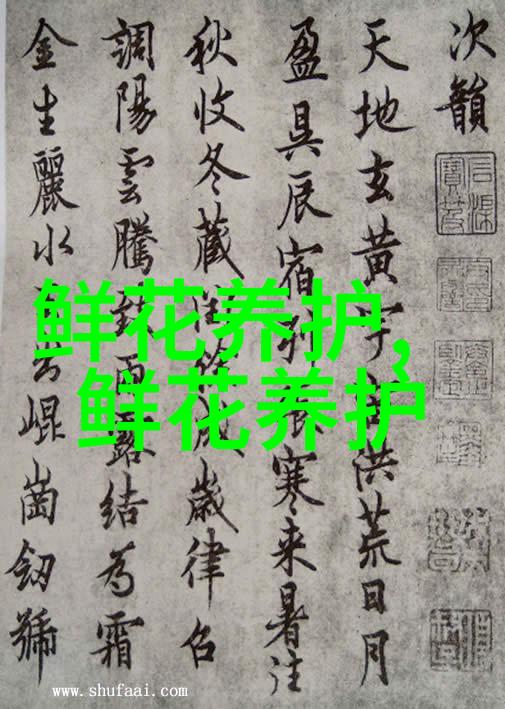 次韻
天地玄黃宇洪荒日月
盈昃辰宿列寒来暑往
秋收冬藏成歲律召
調陽雲騰致雨露結為霜
金生麗水出崐崗劒號
鲜花养护,
鲜花养护
www.shufaai.com